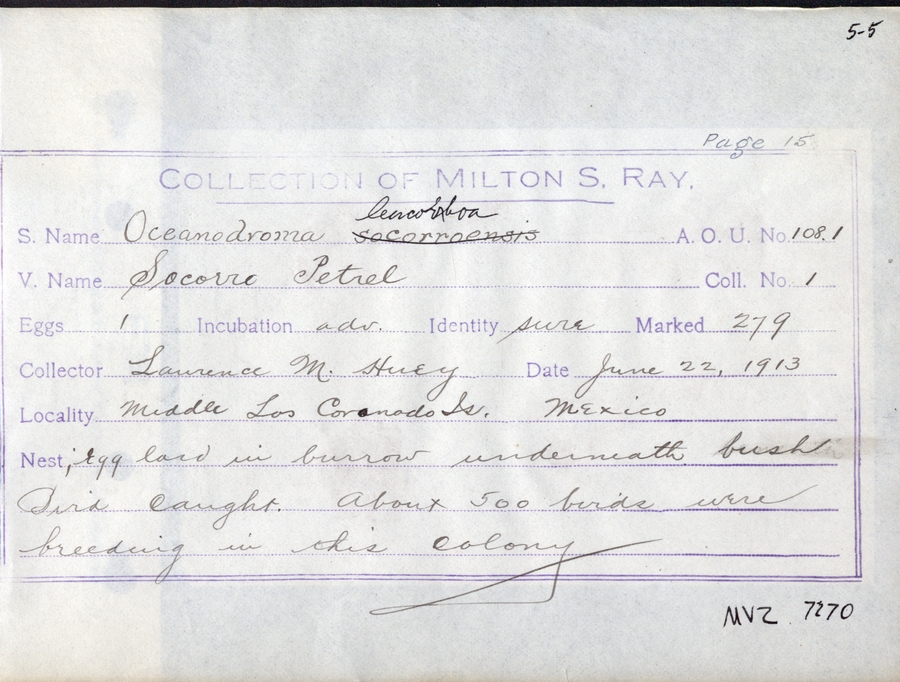 5-5
Page 15
COLLECTION OF MILTON S. RAY.
S. Name Oceanodroma socorroensis A. O. U. No. 108.1
V. Name Socorro Petrel Coll. No. 1
Eggs 1 Incubation adv. Identity sure Marked 279
Collector Laurence M. Huey Date June 22, 1913
Locality Middle Los Coronado Is. Mexico
Nest; Egg laid in burrow underneath bush
Bird caught. About 500 birds were
breeding in this colony
MVZ